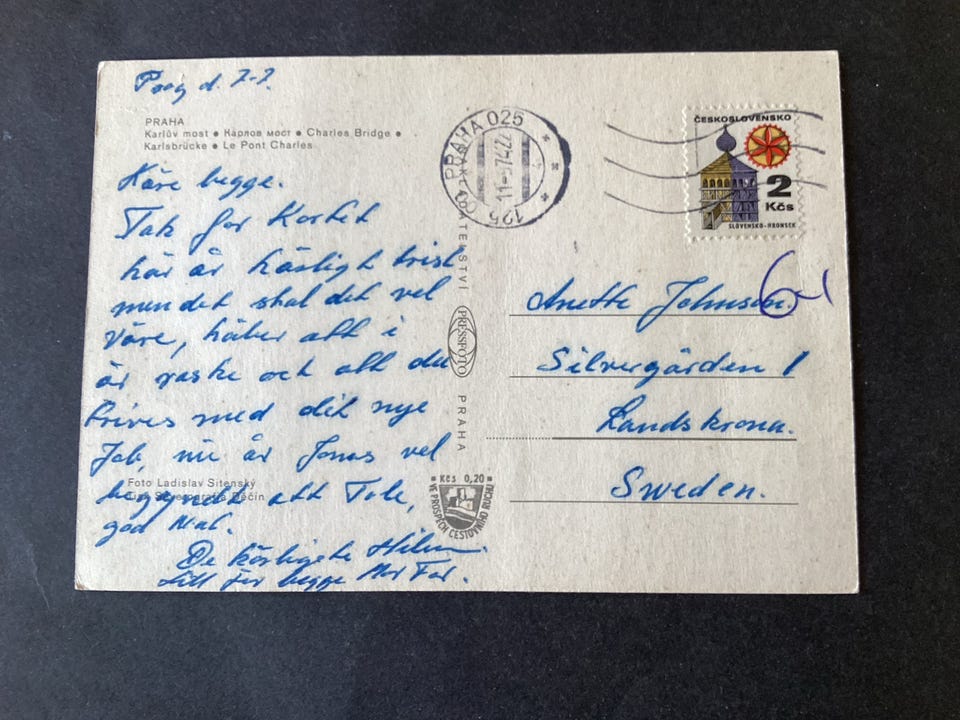 Prag d. 7-7.
PRAHA
Karlův most ● Карлов мост ● Charles Bridge ●
Karlsbrücke ● Le Pont Charles
Käre begge.
Tak for Kortet
här är härligt trist
men det skal det vel
väre, håber att i
är raske och att du
trives med dit nye
Job, nu är Jonas vel
begyndt att Tale,
god Nat.
De kärligste Hilsn.
till jer begge Mor Far.
Foto Ladislav Sitenský
Děčín
PRESSFOTO
PRAHA
Kčs 0,20
VE PROSPĚCH CESTOVNÍHO RUCHU
PRAHA 025
125
ČESKOSLOVENSKO
2
Kčs
SLOVENSKO-HRONSEK
Anette Johnson.
Silvergården 1
Landskrona.
Sweden.